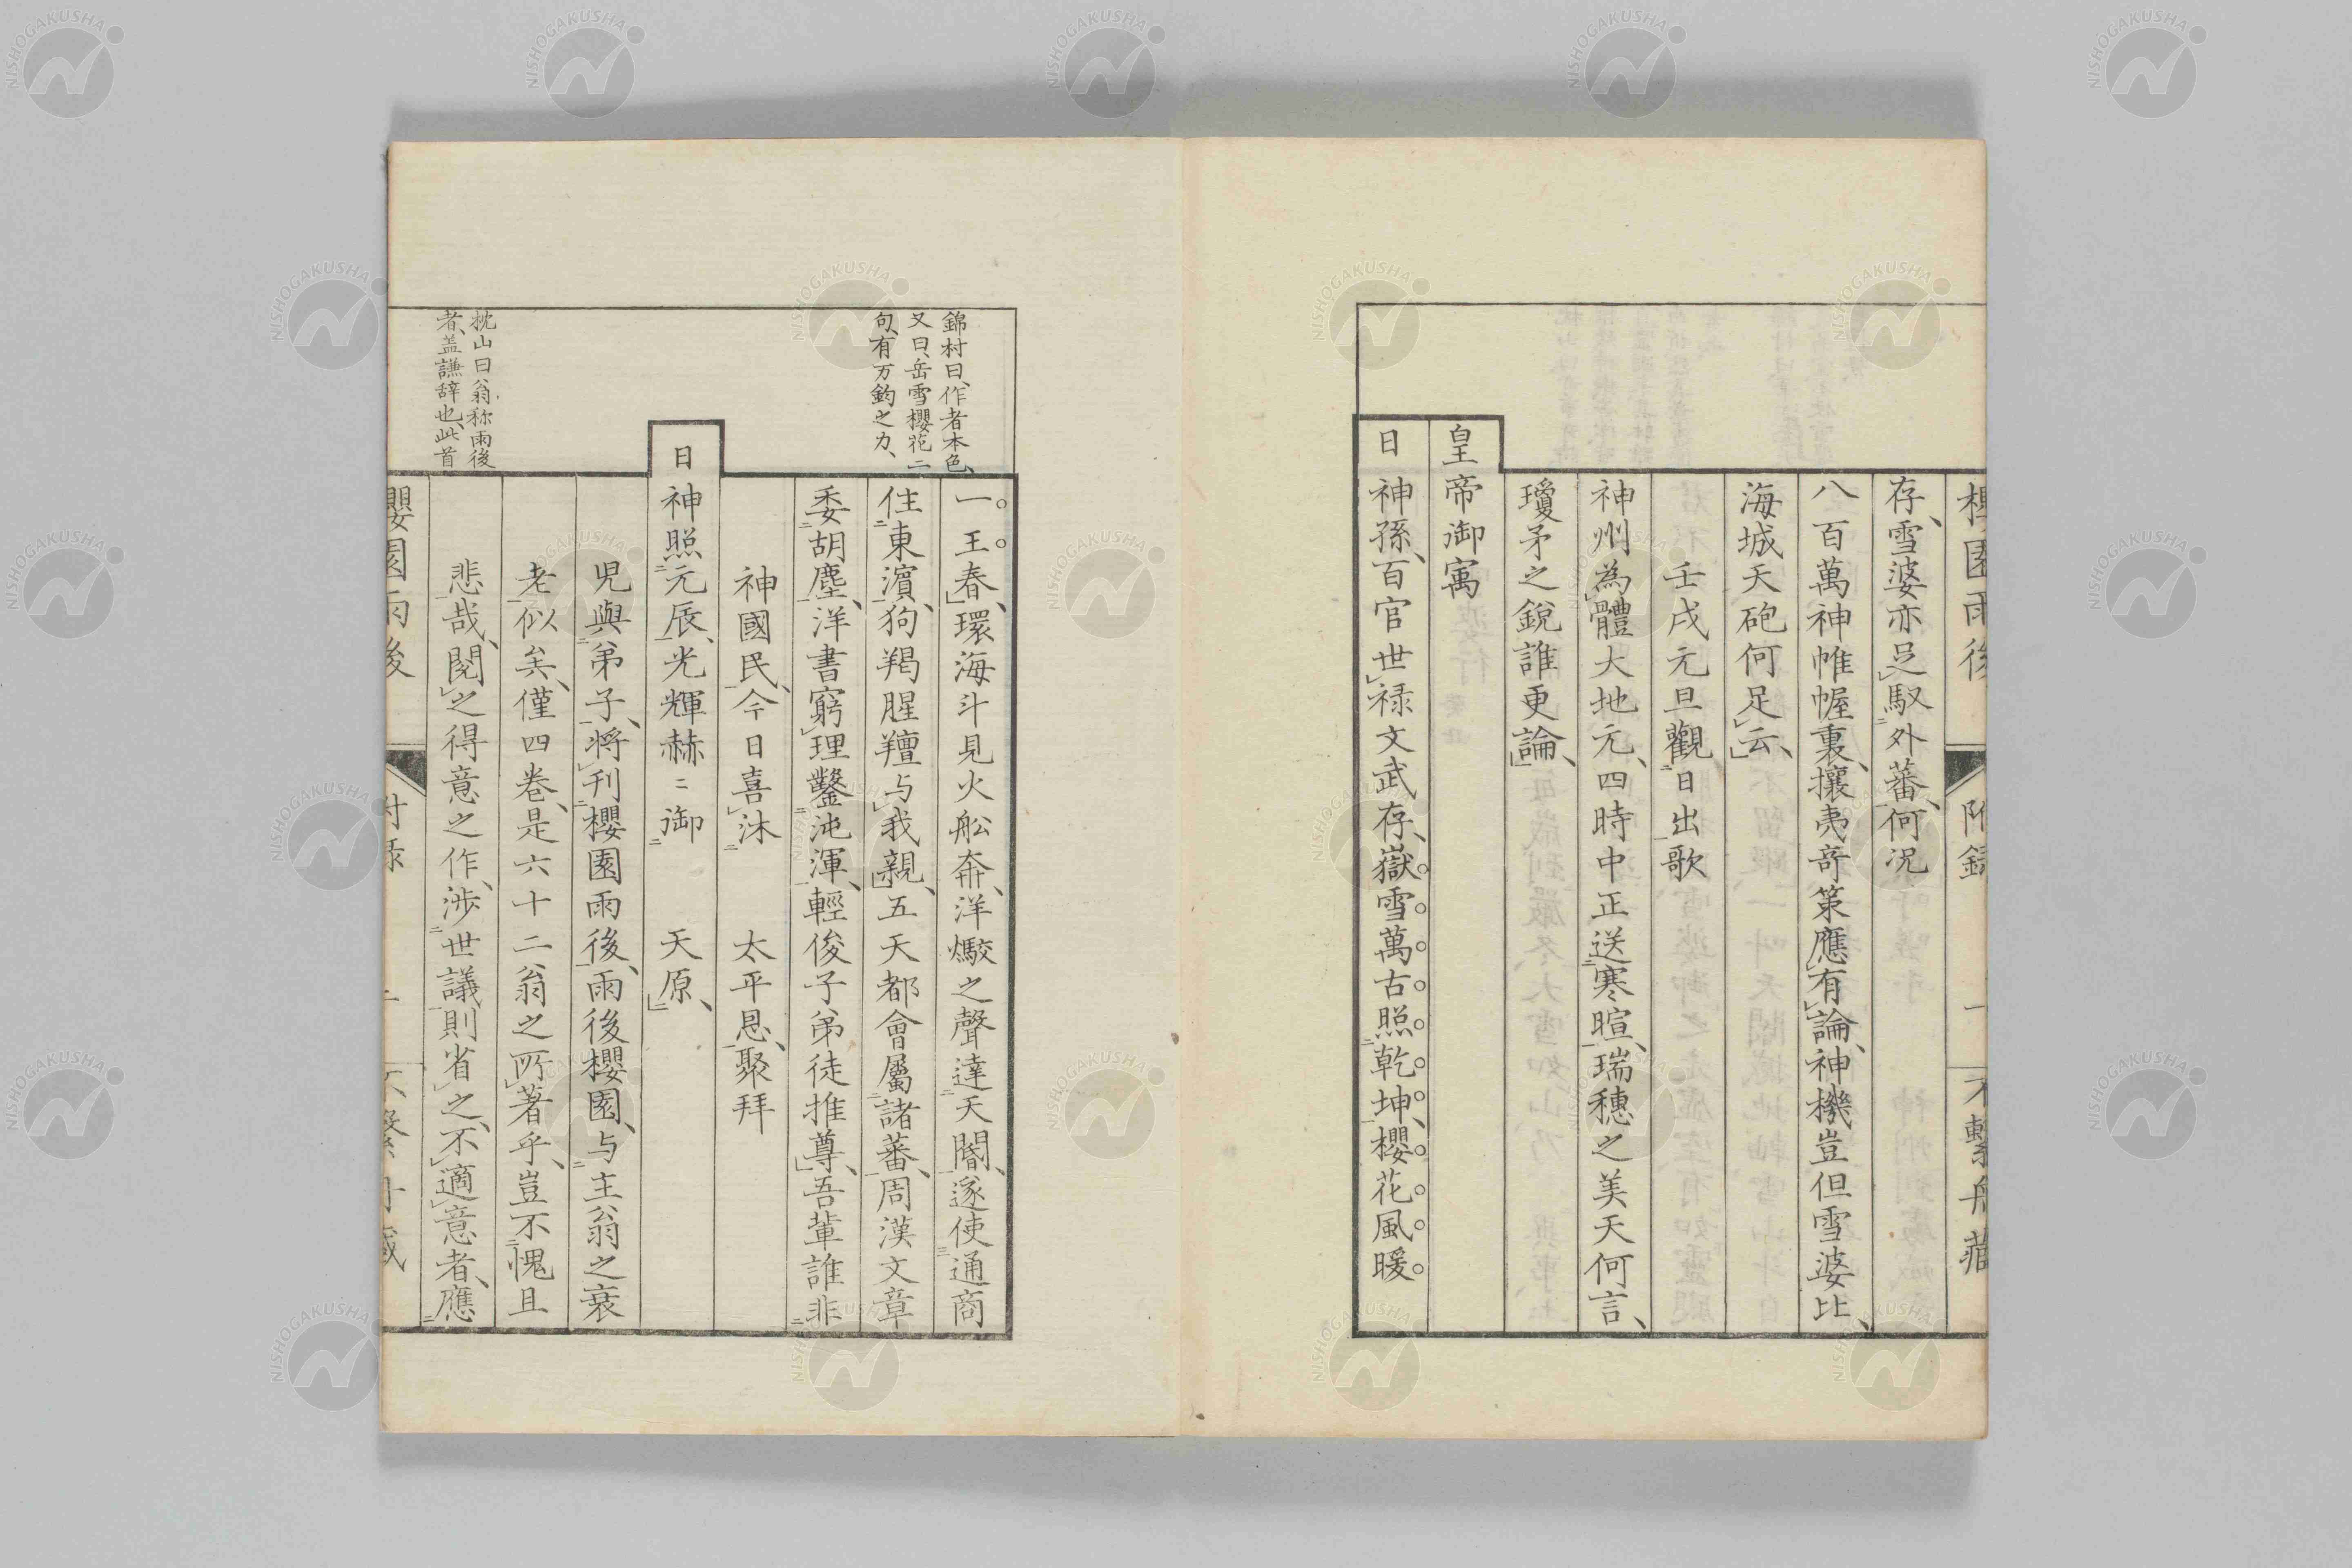 櫻園雨後 附錄 一 不繫舟藏
存、雪婆亦足馭外蕃、何況
八百萬神帷幄裏、攘夷奇策應有論、神機豈但雪婆比、
海城天砲何足云、
壬戌元旦觀日出歌
神州為體大地元、四時中正送寒暄、瑞穗之美天何言、
瓊矛之銳誰更論、
皇帝御寓
日神孫、百官世禄文武存、嶽雪萬古照乾坤、櫻花風暖
錦村曰、作者本色、
又曰、岳雪櫻花二
句、有万鈞之力、
一王春、環海斗見火舩奔、洋㷟之聲達天閽、遂使通商
住東濵、狗羯腥羶与我親、五天都會屬諸蕃、周漢文章
委胡塵、洋書窮理鑿沌渾、輕俊子弟徒推尊、吾輩誰非
神國民、今日喜沐 太平恩、聚拜
日神照元辰、光輝赫〻御 天原、
児與弟子、将刊櫻園雨後、雨後櫻園、与主翁之衰
老似矣、僅四卷、是六十二翁之所著乎、豈不愧且
枕山曰翁称雨後
者、盖謙辞也、此首
悲哉、閱之得意之作、涉世議則省之、不適意者、應
櫻園雨後